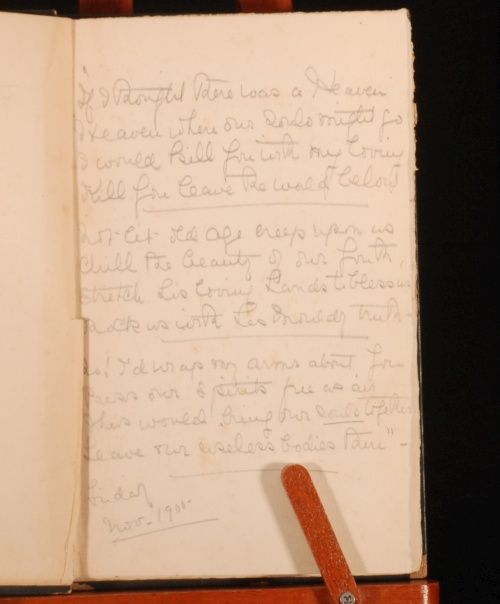 "If I thought there was a Heaven
Heaven where our souls might go
I would kill you with my loving
Kill you leave the world below
Not let old age creep upon us
Chill the beauty of our youth,
Stretch his loving hands to bless us
us with his truth -
So! I'd wrap my arms about you
our spirits free as air
would bring our souls together
Leave our useless bodies there" -
Nov. 1900